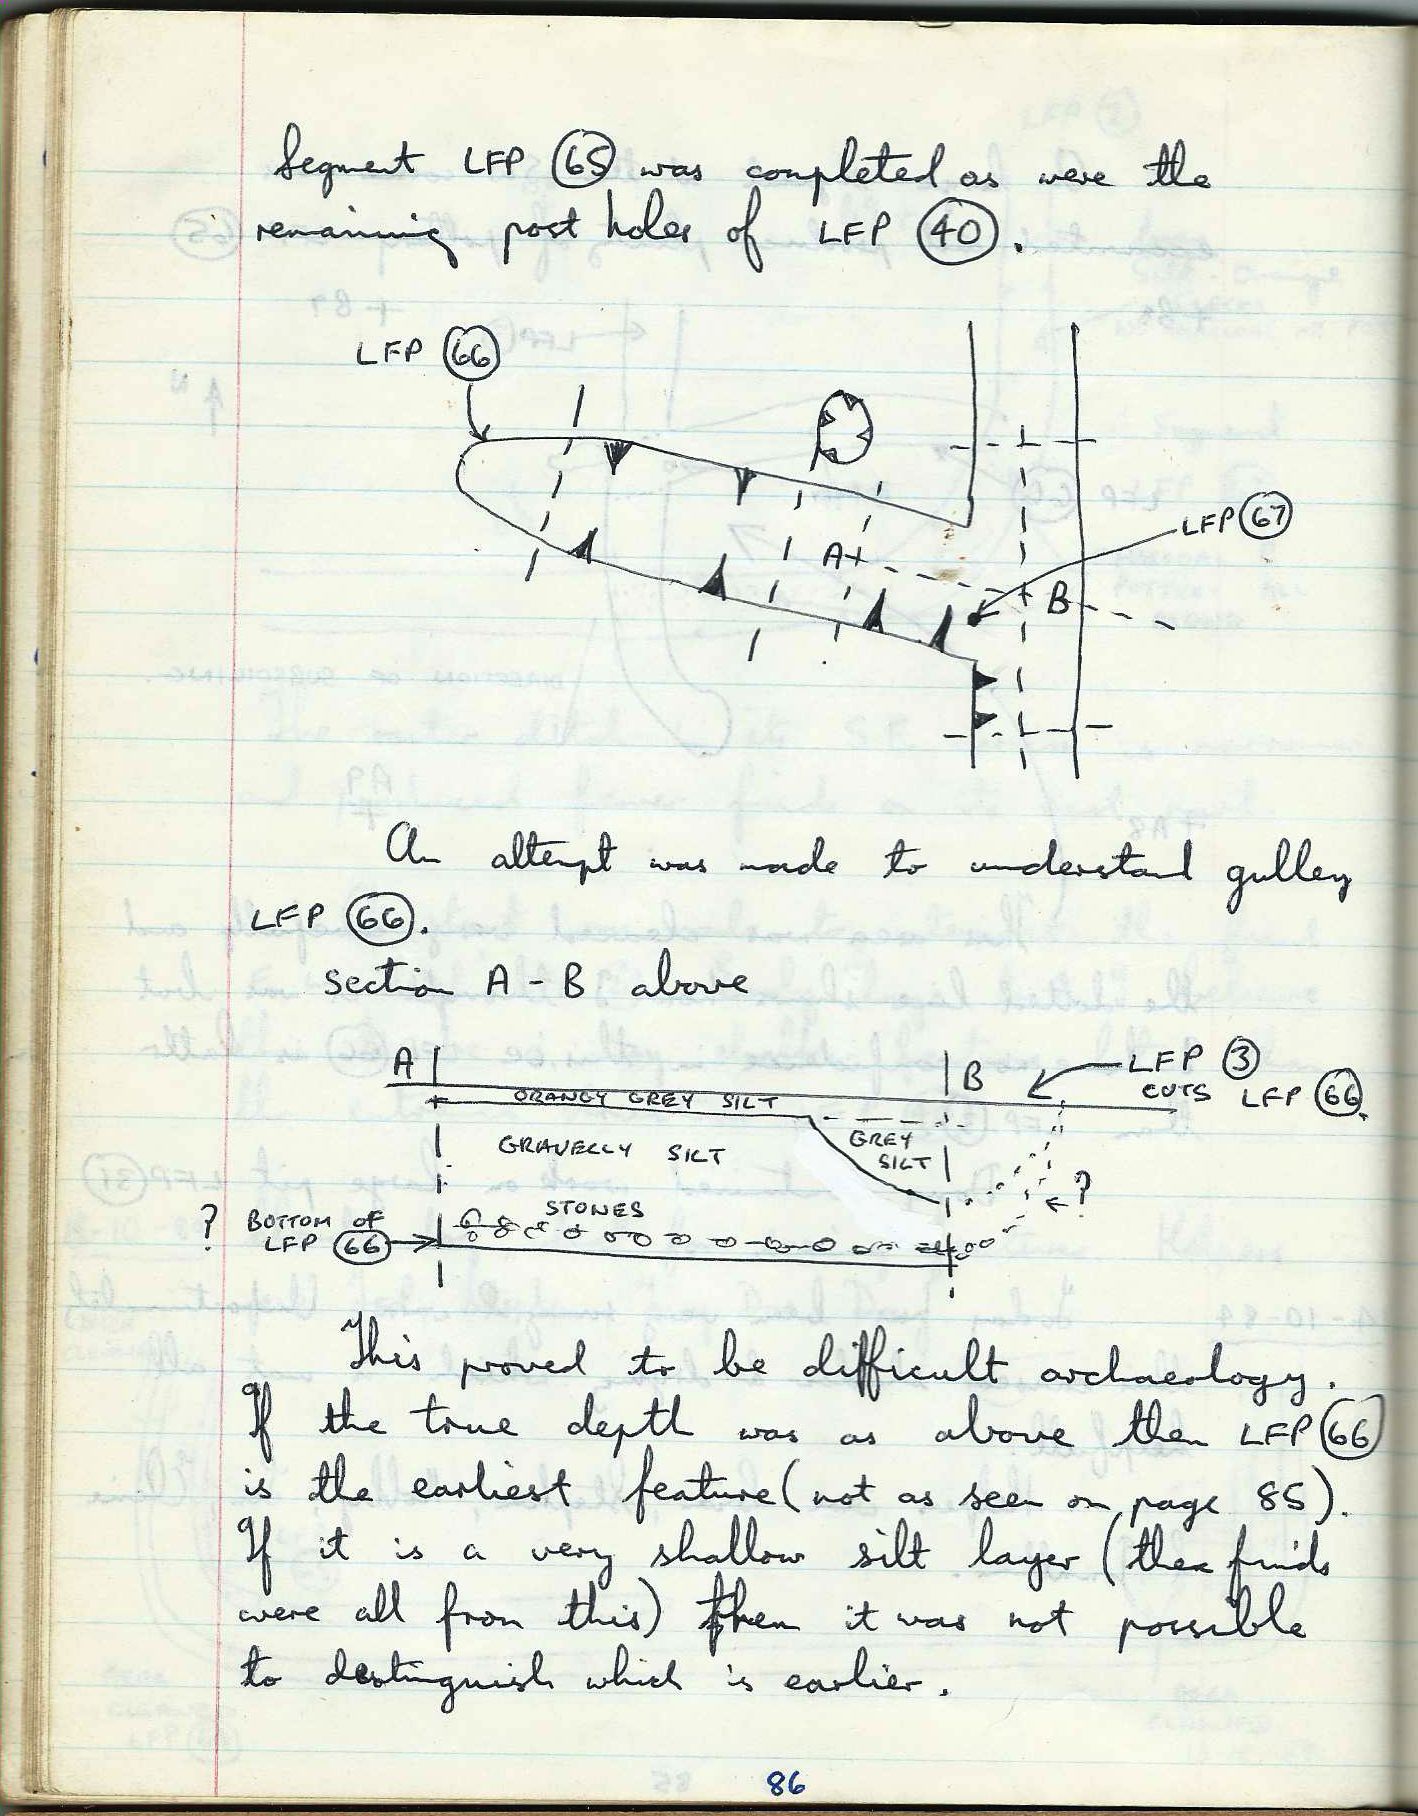 Segment LFP 65 was completed as were the
remaining post holes of LFP 40.
LFP 66
LFP 67
A
B
An attempt was made to understand gulley
LFP 66.
Section A - B above
A
B
LFP 3
CUTS LFP 66.
ORANGY GREY SILT
GREY
SILT
GRAVELLY SILT
?
STONES
? BOTTOM OF
LFP 66
This proved to be difficult archaeology.
If the true depth was as above then LFP 66
is the earliest feature (not as seen on page 85).
If it is a very shallow silt layer (the finds
were all from this) then it was not possible
to distinguish which is earlier.
86